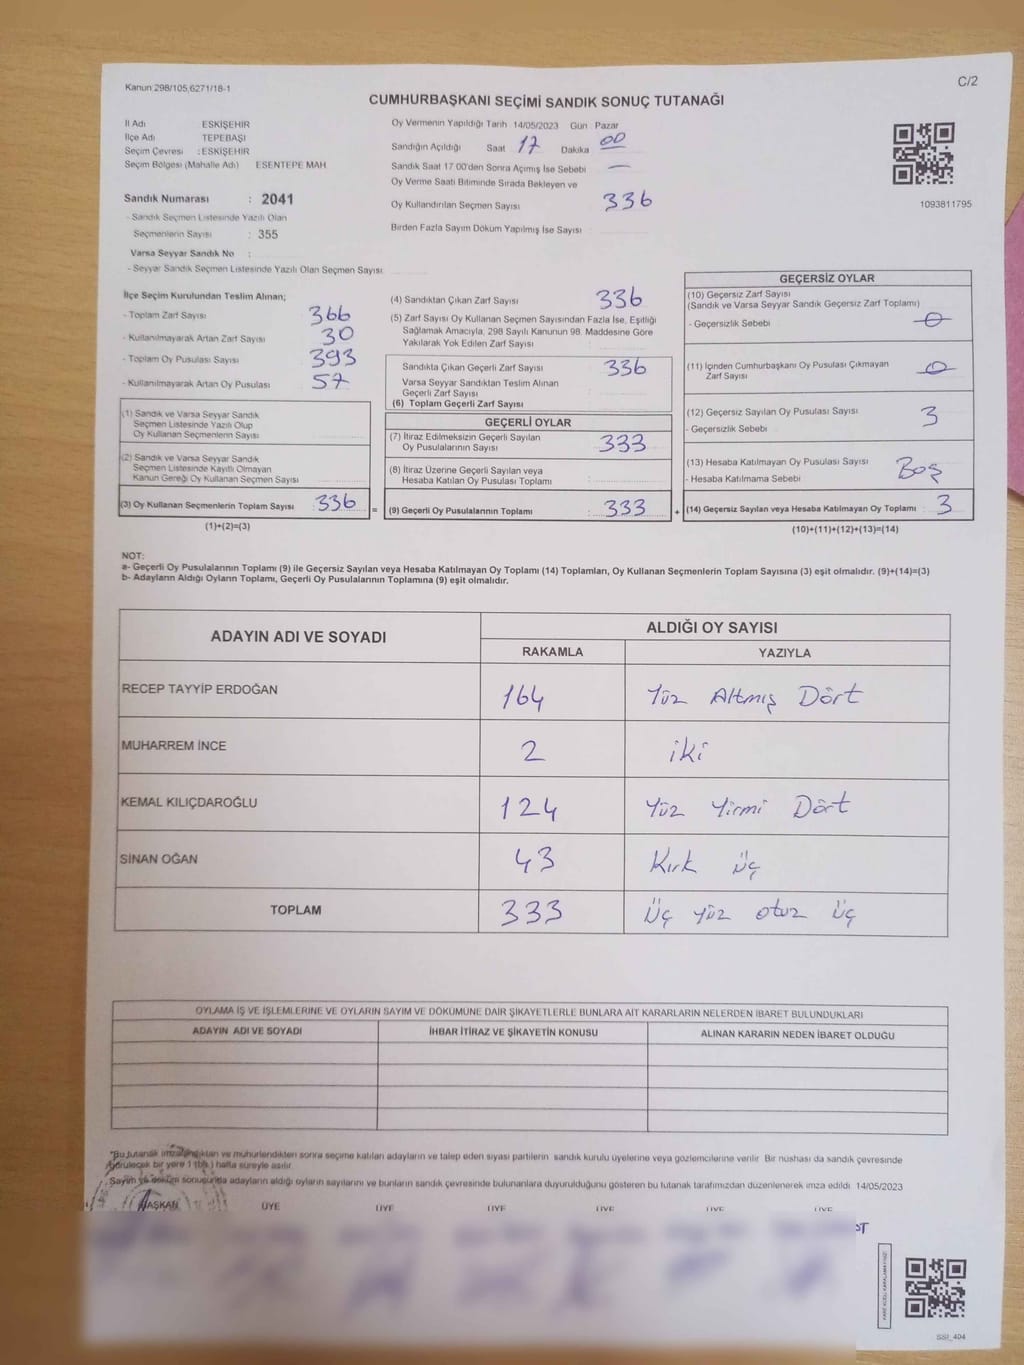 Kanun 298/105,6271/18-1
C/2
CUMHURBAŞKANI SEÇİMİ SANDIK SONUÇ TUTANAĞI
İl Adı ESKİŞEHİR
İlçe Adı TEPEBAŞI
Seçim Çevresi : ESKİŞEHİR
Seçim Bölgesi (Mahalle Adı) ESENTEPE MAH
Sandık Numarası : 2041
- Sandık Seçmen Listesinde Yazılı Olan
Seçmenlerin Sayısı : 355
Varsa Seyyar Sandık No :
- Seyyar Sandık Seçmen Listesinde Yazılı Olan Seçmen Sayısı
Oy Vermenin Yapıldığı Tarih 14/05/2023 Gün Pazar
Sandığın Açıldığı Saat 17 Dakika 00
Sandık Saat 17:00'den Sonra Açılmış İse Sebebi —
Oy Verme Saati Bitiminde Sırada Bekleyen ve
Oy Kullandırılan Seçmen Sayısı 336
Birden Fazla Sayım Döküm Yapılmış İse Sayısı
1093811795
İlçe Seçim Kurulundan Teslim Alınan;
- Toplam Zarf Sayısı 366
- Kullanılmayarak Artan Zarf Sayısı 30
- Toplam Oy Pusulası Sayısı 393
- Kullanılmayarak Artan Oy Pusulası 57
(1) Sandık ve Varsa Seyyar Sandık
Seçmen Listesinde Yazılı Olup
Oy Kullanan Seçmenlerin Sayısı
(2) Sandık ve Varsa Seyyar Sandık
Seçmen Listesinde Kayıtlı Olmayan
Kanun Gereği Oy Kullanan Seçmen Sayısı
(3) Oy Kullanan Seçmenlerin Toplam Sayısı : 336 =
(1)+(2)=(3)
(4) Sandıktan Çıkan Zarf Sayısı 336
(5) Zarf Sayısı Oy Kullanan Seçmen Sayısından Fazla İse, Eşitliği
Sağlamak Amacıyla, 298 Sayılı Kanunun 98. Maddesine Göre
Yakılarak Yok Edilen Zarf Sayısı
Sandıkta Çıkan Geçerli Zarf Sayısı 336
Varsa Seyyar Sandıktan Teslim Alınan
Geçerli Zarf Sayısı
(6) Toplam Geçerli Zarf Sayısı
GEÇERLİ OYLAR
(7) İtiraz Edilmeksizin Geçerli Sayılan
Oy Pusulalarının Sayısı 333
(8) İtiraz Üzerine Geçerli Sayılan veya
Hesaba Katılan Oy Pusulası Toplamı
(9) Geçerli Oy Pusulalarının Toplamı : 333 +
GEÇERSİZ OYLAR
(10) Geçersiz Zarf Sayısı
(Sandık ve Varsa Seyyar Sandık Geçersiz Zarf Toplamı)
- Geçersizlik Sebebi 0
(11) İçinden Cumhurbaşkanı Oy Pusulası Çıkmayan
Zarf Sayısı 0
(12) Geçersiz Sayılan Oy Pusulası Sayısı 3
- Geçersizlik Sebebi
(13) Hesaba Katılmayan Oy Pusulası Sayısı Boş
- Hesaba Katılmama Sebebi
(14) Geçersiz Sayılan veya Hesaba Katılmayan Oy Toplamı : 3
(10)+(11)+(12)+(13)=(14)
NOT:
a- Geçerli Oy Pusulalarının Toplamı (9) ile Geçersiz Sayılan veya Hesaba Katılmayan Oy Toplamı (14) Toplamları, Oy Kullanan Seçmenlerin Toplam Sayısına (3) eşit olmalıdır. (9)+(14)=(3)
b- Adayların Aldığı Oyların Toplamı, Geçerli Oy Pusulalarının Toplamına (9) eşit olmalıdır.
ADAYIN ADI VE SOYADI ALDIĞI OY SAYISI
RAKAMLA YAZIYLA
RECEP TAYYİP ERDOĞAN 164 Yüz Altmış Dört
MUHARREM İNCE 2 iki
KEMAL KILIÇDAROĞLU 124 Yüz Yirmi Dört
SİNAN OĞAN 43 Kırk üç
TOPLAM 333 üç yüz otuz üç
OYLAMA İŞ VE İŞLEMLERİNE VE OYLARIN SAYIM VE DÖKÜMÜNE DAİR ŞİKAYETLERLE BUNLARA AİT KARARLARIN NELERDEN İBARET BULUNDUKLARI
ADAYIN ADI VE SOYADI İHBAR İTİRAZ VE ŞİKAYETİN KONUSU ALINAN KARARIN NEDEN İBARET OLDUĞU
*Bu tutanak imzalandıktan ve mühürlendikten sonra seçime katılan adayların ve talep eden siyasi partilerin sandık kurulu üyelerine veya gözlemcilerine verilir. Bir nüshası da sandık çevresinde
görülecek bir yere 1 (bir) hafta süreyle asılır.
Sayım ve döküm sonucunda adayların aldığı oyların sayılarını ve bunların sandık çevresinde bulunanlara duyurulduğunu gösteren bu tutanak tarafımızdan düzenlenerek imza edildi 14/05/2023
BAŞKAN ÜYE ÜYE ÜYE ÜYE ÜYE ÜYE
SSI_404